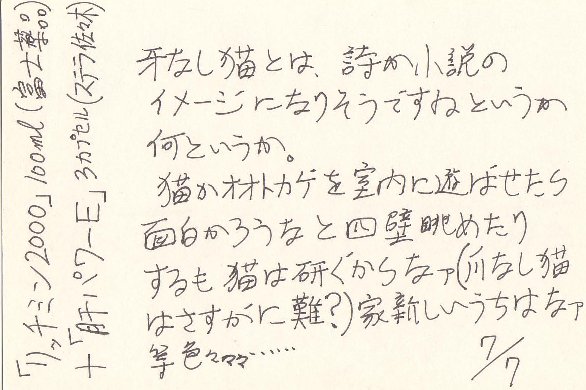 牙なし猫とは、詩か小説の
イメージになりそうですねというか
何というか。
猫かオオトカゲを室内に遊ばせたら
面白かろうなと四壁眺めたり
するも猫は研ぐからなァ(爪なし猫
はさすがに難?)家新しいうちはなァ
等色々々々……
7/7
「リッチミン2000」100ml(富士薬品)
+「肝パワーE」3カプセル(ステラ佐々木)